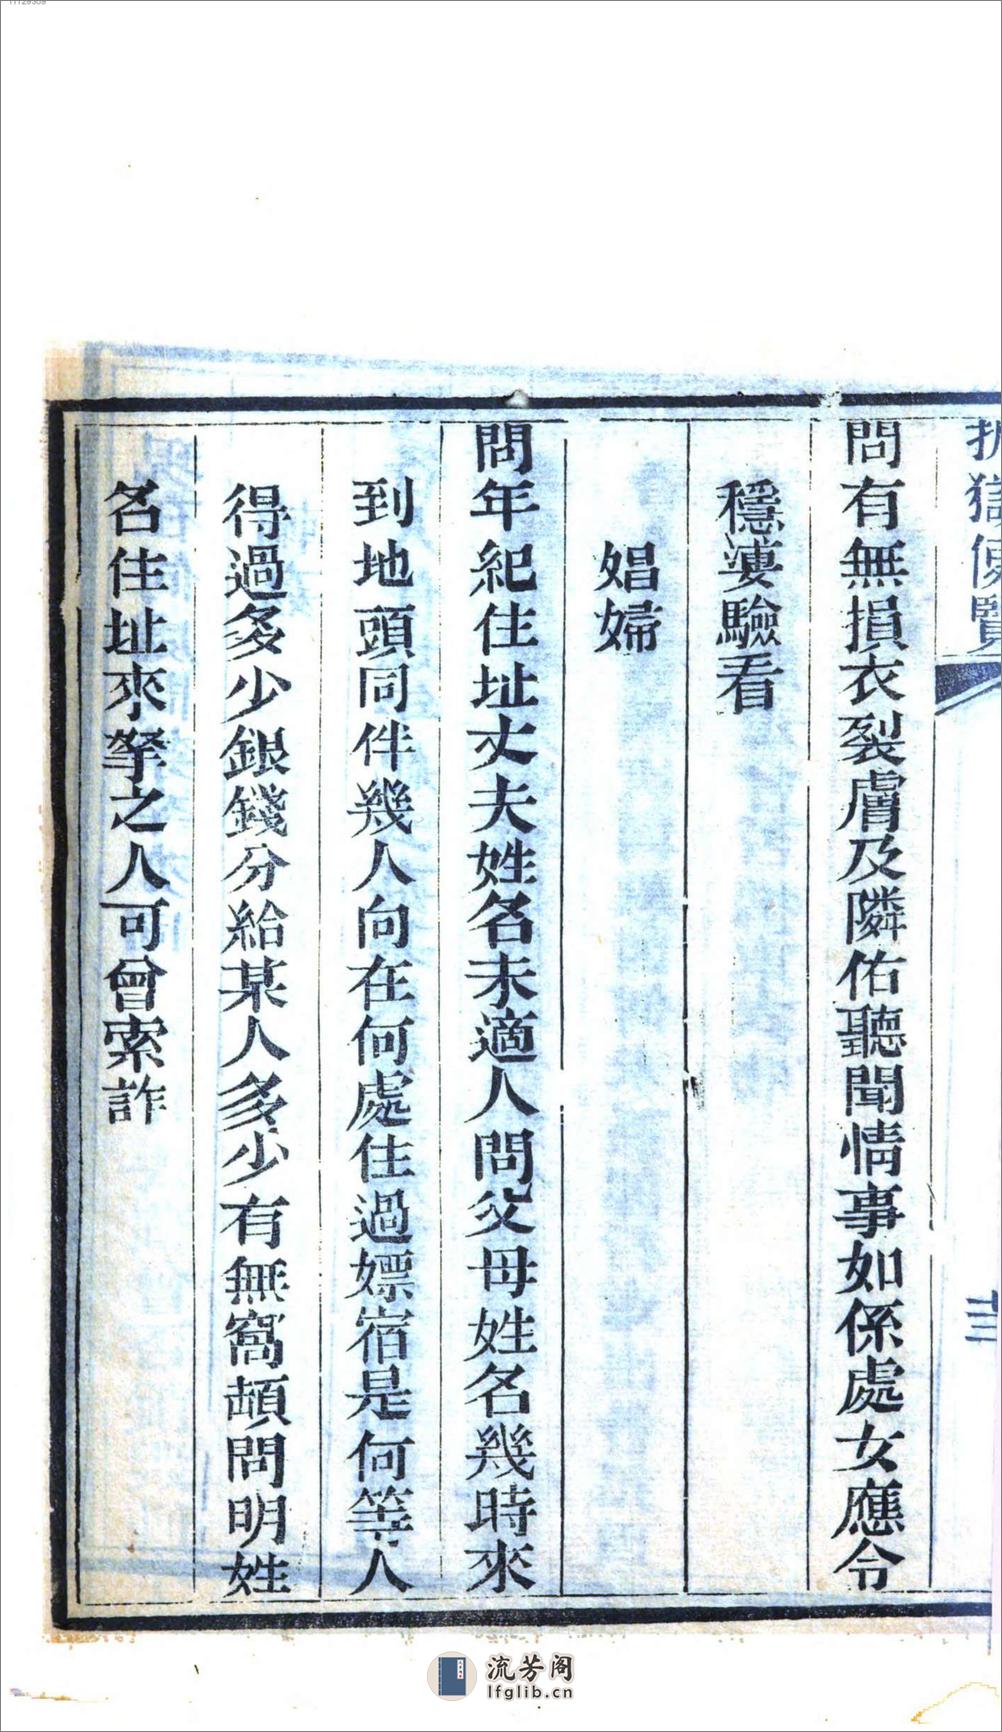 折獄便覽
問有無損衣裂膚及隣佑聽聞情事如係處女應令
穩婆驗看
娼婦
問年紀住址丈夫姓名未適人問父母姓名幾時來
到地頭同伴幾人向在何處住過嫖宿是何等人
得過多少銀錢分給某人多少有無窩頓問明姓
名住址來拏之人可曾索詐
流芳阁
lfglib.cn